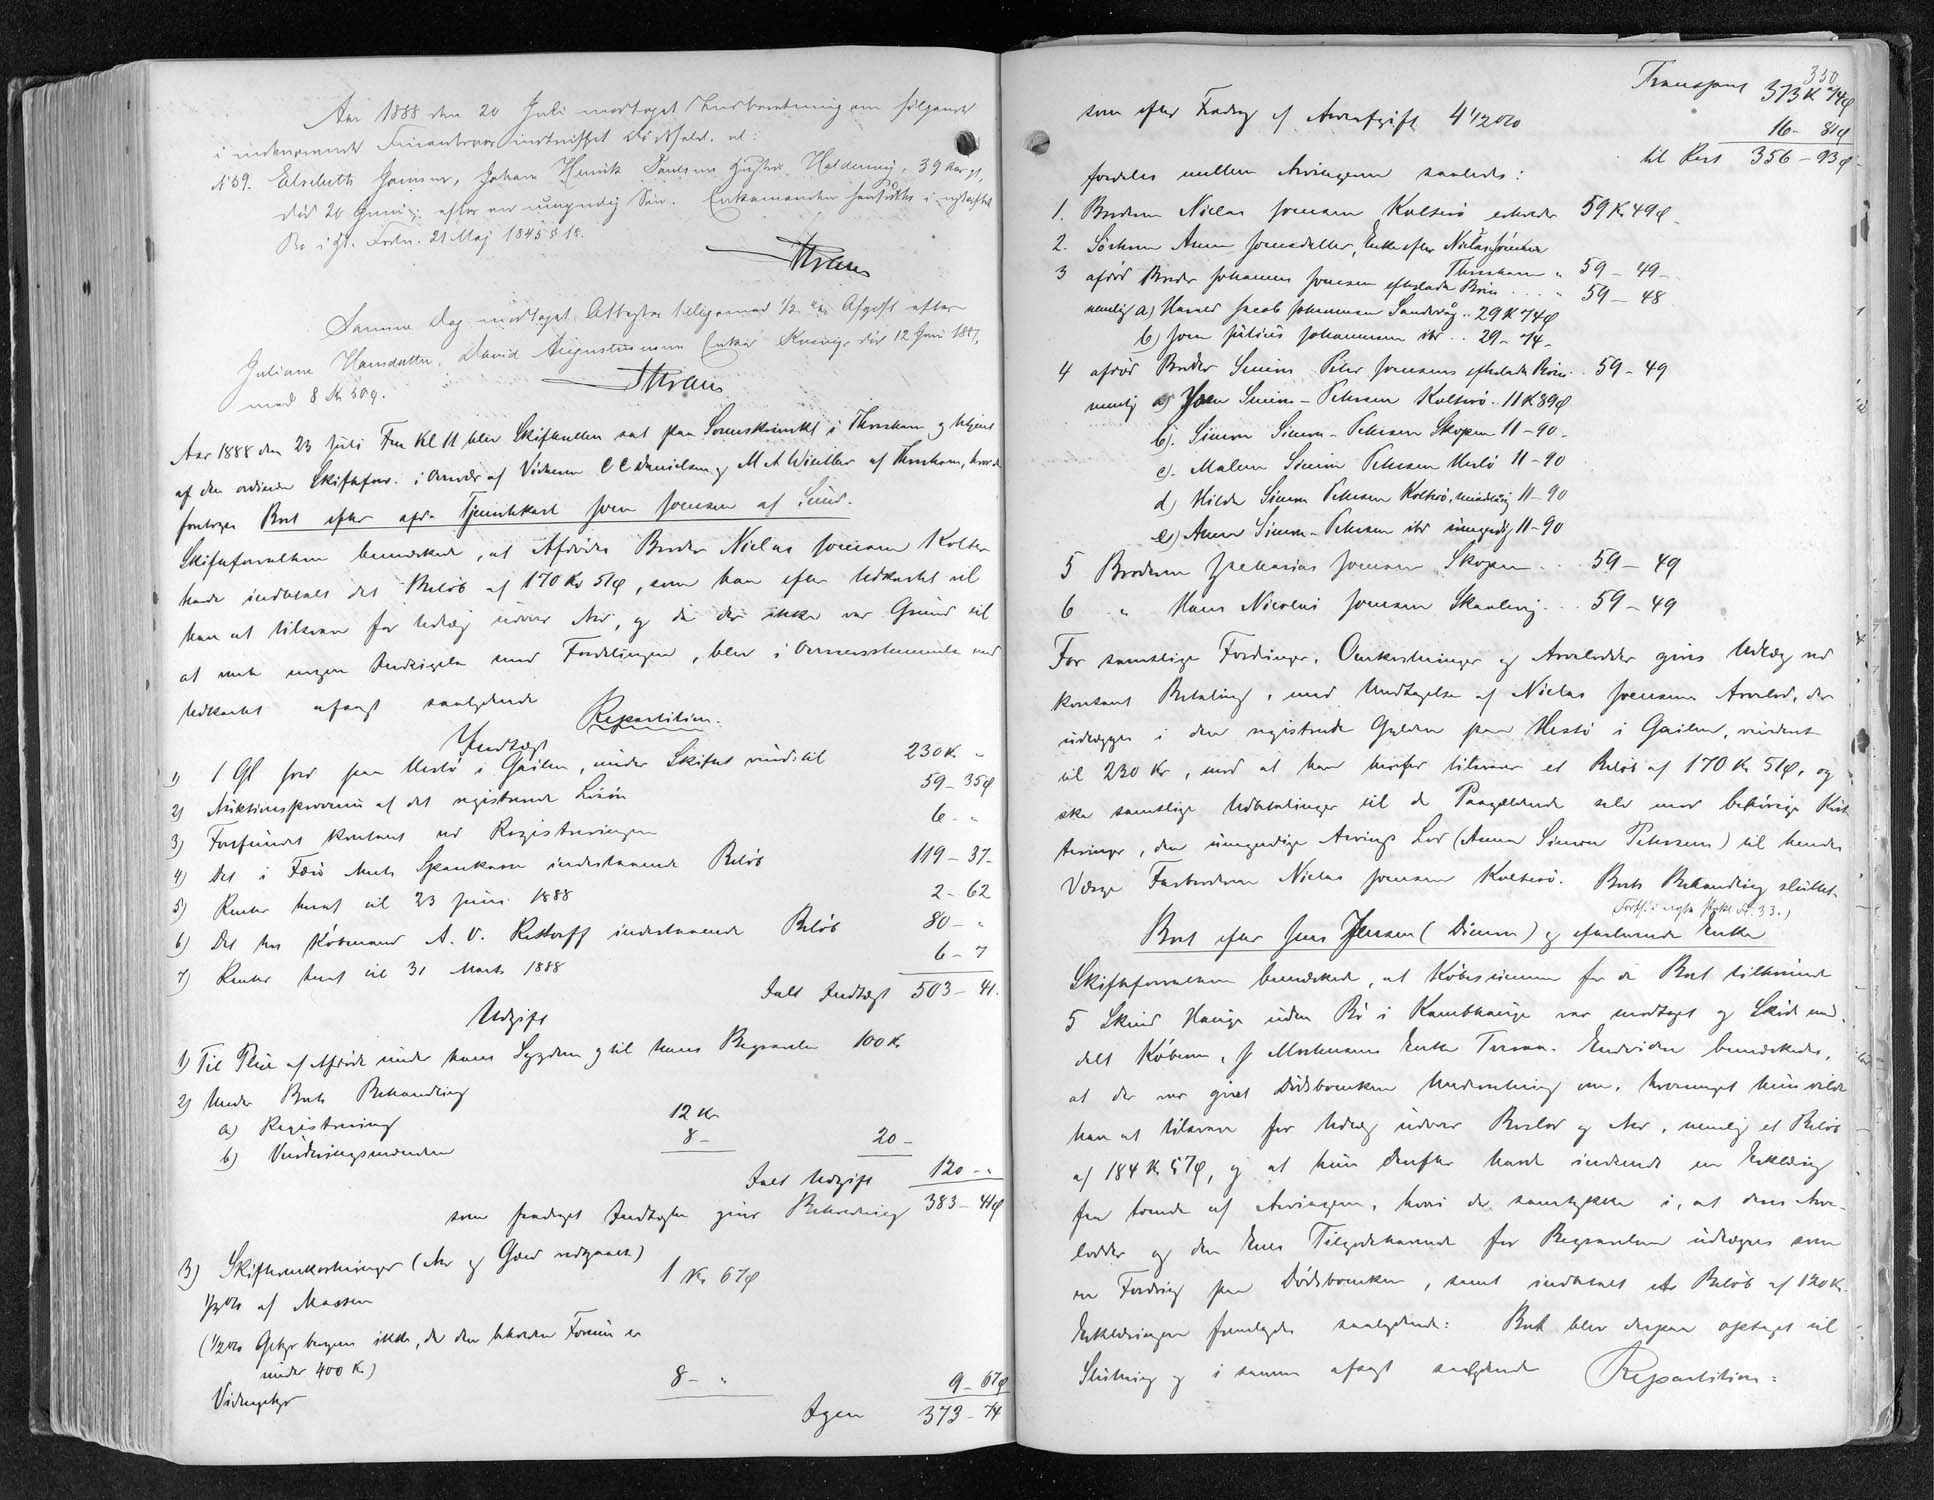 Aar 1888 den 20 Juli modtaget Indberetning om følgende
i indeværende Finantsaar indtruffet Dødsfald. al:
№ 59. Elsebeth Joensen, Johan Henrik Poulsens Hustru, Haldervig, 39 Aar gl,
død 20 Juni, efter en umyndig Søn. Enkemanden hensidder i uskiftet
Bo i H. t. Fordn. 21 Maj 1845 § 18.
Samme Dag modtaget Attester tilligemed ½ % Afgift efter
Juliane Hansdatter, David Augustinussens Enke Kunoy, død 12 Juni 1887,
med 8 Kr 50 φ.
Aar 1888 den 23 Juli Fm Kl 11 blev Skifteretten sat paa Sorenskriverkt i Thorshavn og betjent
af den ordinære Skifteforv. i Overvær af Vidnerne C C Danielsen og M A Winther af Thorshavn, hvorda
foretoges Boet efter afdøde Tjenestekarl Joen Joensen af Sund.
Skifteforvalteren bemærkede, at Afdødes Broder Niclas Joensen Kolter
havde indbetalt det Beløb af 170 Kr 51 φ, som han efter Udkastet vil
have at tilsvare for Udlæg udover Arv, og da der ikke var Grund til
at vente nogen Indsigelse mod Fordelingen, blev i Overensstemmelse med
Udkastet afsagt saalydende
Repartition.
Indtægt
1) 1 Gl Jord paa Hestø i Gailen, under Skiftet vurd. til 230 Kr "
2) Auktionsprovenu af det registrerede Løsøre 59 - 35 φ
3) Forefundet kontant ved Registreringen 6 - "
4) Det i Færø Amts Sparekasse indestaaende Beløb 119 - 37 -
5) Renter heraf til 23 Juni 1888 2 - 62
6) Det hos Købmand A. V. Restorff indestaaende Beløb 80 - "
7) Renter heraf til 31 Marts 1888 6 - 7
Ialt Indtægt 503 - 41.
Udgift
1) Til Pleie af Afdøde under hans Sygdom og til hans Begravelse 100 Kr
2) Under Boets Behandling
a) Registrering 12 Kr
b) Vurderingsmændene 8 - 20 -
Ialt Udgift 120 - "
som fradraget Indtægten giver Beholdning 383 - 41 φ
3) Skifteomkostninger (Arv og Gæld vedgaaet)
1/3 % af Massen 1 Kr 67 φ
(½ % Gebyr beregnes ikke, da den beholdne Formue er
under 400 Kr)
Vidnegebyr 8 - " 9 - 67 φ
Igen 373 - 74
350
Transport 373 Kr 74 φ
som efter Fradrag af Arveafgift 4 1/2 % 16 - 81 φ
til Rest 356 - 93 φ
fordeles mellem Arvingerne saaledes:
1. Broderen Niclas Joensen Kolterø erholder 59 Kr 49 φ
2. Søsteren Anna Joensdatter, Enke efter Niclas Joensen
Thorshavn " 59 - 49 -
3 afdød Broder Johannes Joensen efterladte Børn . . . " 59 - 48
nemlig a) Hanes Jacob Johannesen Sandevåg . . 29 Kr 74 φ
b) Joen Julius Johannesen ibd . . 29 - 74 -
4 afdød Broder Simon Peter Joensens efterladte Børn . . 59 - 49
nemlig a) Joen Simon - Petersen Kolterø . . 11 Kr 89 φ
b). Simon Simon - Petersen Skopen 11 - 90 -
c). Malene Simon Petersen Hestø 11 - 90
d) Hilda Simon Petersen Kolterø, mindreårig 11 - 90
e) Anna Simon - Petersen ibd umyndig 11 - 90
5 Broderen Zacharias Joensen Skopen . . 59 - 49
6 " Hans Nicolai Joensen Skaalevig . . . 59 - 49
For samtlige Fordringer, Omkostninger og Arvelodder gives Udlæg ved
kontant Betaling, med Undtagelse af Niclas Joensens Arvelod, der
udlægges i den registrerede Gylden paa Hestø i Gailen, vurderet
til 230 Kr, mod at han herefter tilsvarer et Beløb af 170 Kr 51 φ, og
ske samtlige Udbetalinger til de Paagældende selv mod behørige Kvit
teringer, den umyndige Arvings Lod (Anna Simon Petersen) til hendes
Værge Farbroderen Niclas Joensen Kolterø. Boets Behandling sluttet.
(Fortsk. i nyste Prot. S. 33.)
Boet efter Jens Jensen (Dimon) og efterlevende Enke
Skifteforvalteren bemærkede, at Købesummen for de Boet tilhørende
5 Skind Hauge uden Bø i Kambhauge var modtaget og Skøde med-
delt Køberen, J Mortensens Enke Tværaa. Endvidere bemærkedes,
at der var givet Dødsboenken Underretning om, hvormeget hun vilde
have at tilsvare for Udlæg udover Boslod og Arv, nemlig et Beløb
af 184 Kr 57 φ, og at hun derefter havde indsendt en Erklæring
fra tvende af Arvingerne, hvori de samtykker i, at deres Arve-
lodder og den Enes Tilgodehavende for Begravelsen udlægges som
en Fordring paa Dødsboenken, samt indbetalt et Beløb af 120 Kr.
Erklæringen fremlagdes saalydende: Boet blev derpaa optaget til
Slutning og i samme afsagt saalydende Repartition: